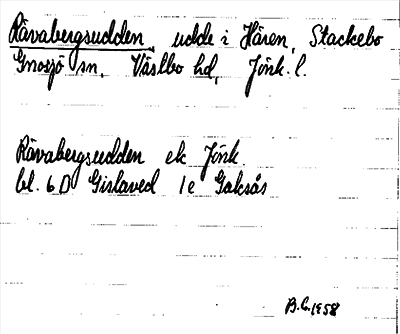 Rävabergsudden, udde i Hären, Stackebo
Gnosjö sn, Västbo hd, Jönk. l.
Rävabergsudden ek Jönk.
bl. 6D Gislaved 1e Gaksås
B.G. 1958